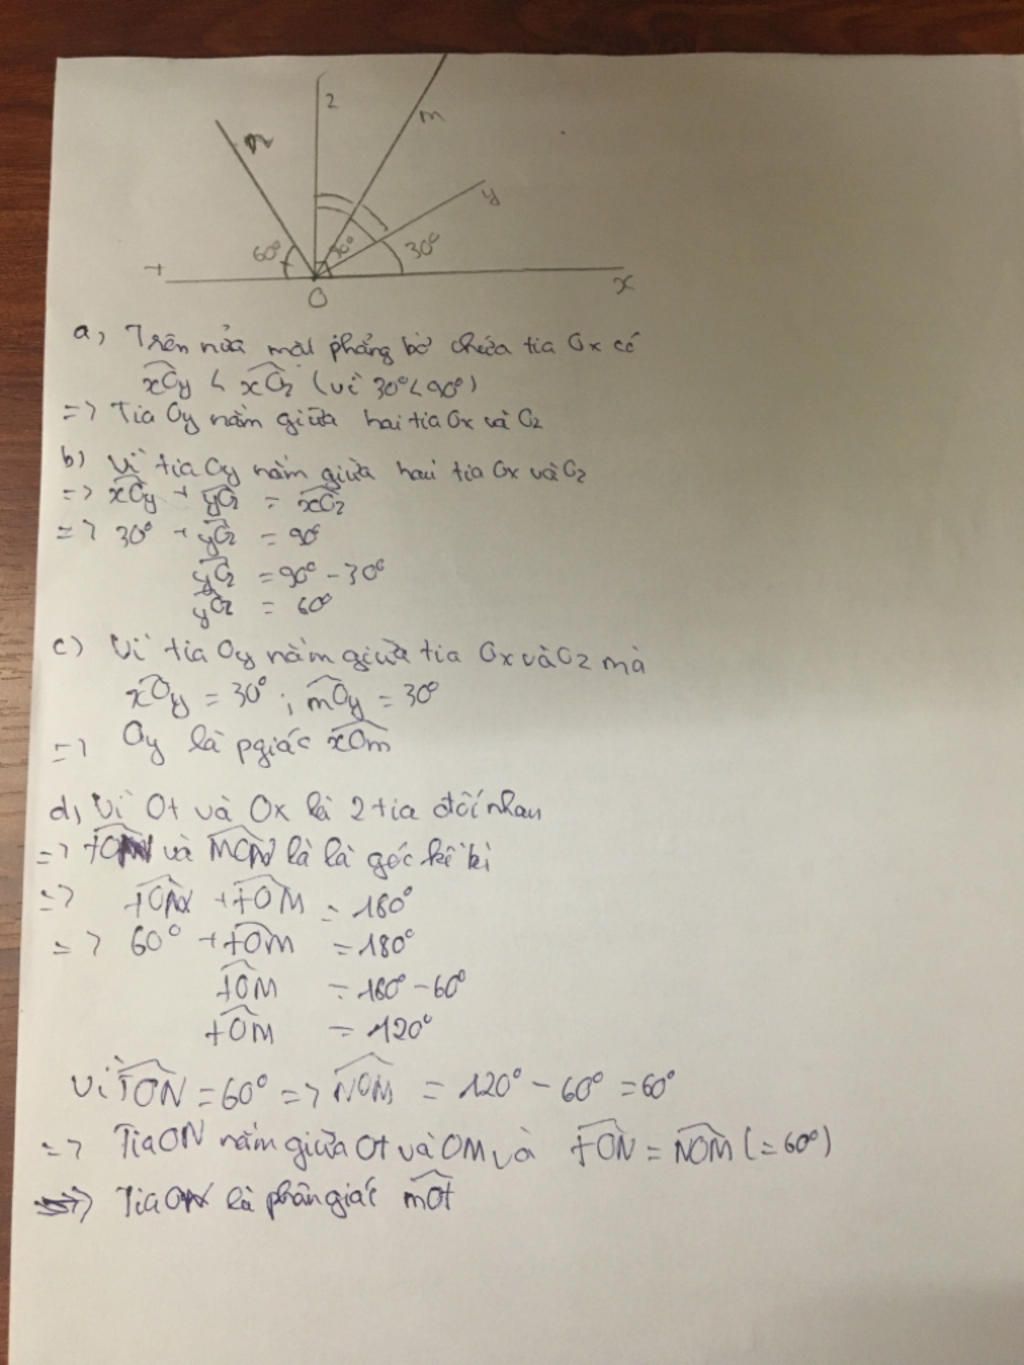 n
z
m
y
60°
30°
30°
t
O
x
a, Trên nửa mặt phẳng bờ chứa tia Ox có
xOy < xOz (vì 30° < 90°)
=> Tia Oy nằm giữa hai tia Ox và Oz
b) Vì tia Oy nằm giữa hai tia Ox và Oz
=> xOy + yOz = xOz
=> 30° + yOz = 90°
yOz = 90° - 30°
yOz = 60°
c) Vì tia Oy nằm giữa tia Ox và Oz mà
xOy = 30° ; mOy = 30°
=> Oy là pgiác xOm
d, Vì Ot và Ox là 2 tia đối nhau
=> và là là góc kề bì
=> + tOM = 180°
=> 60° + tOM = 180°
tOM = 180° - 60°
tOM = 120°
Vì TON = 60° => NOM = 120° - 60° = 60°
=> Tia ON nằm giữa Ot và OM và tON = NOM (= 60°)
=> Tia ON là phân giác mOt